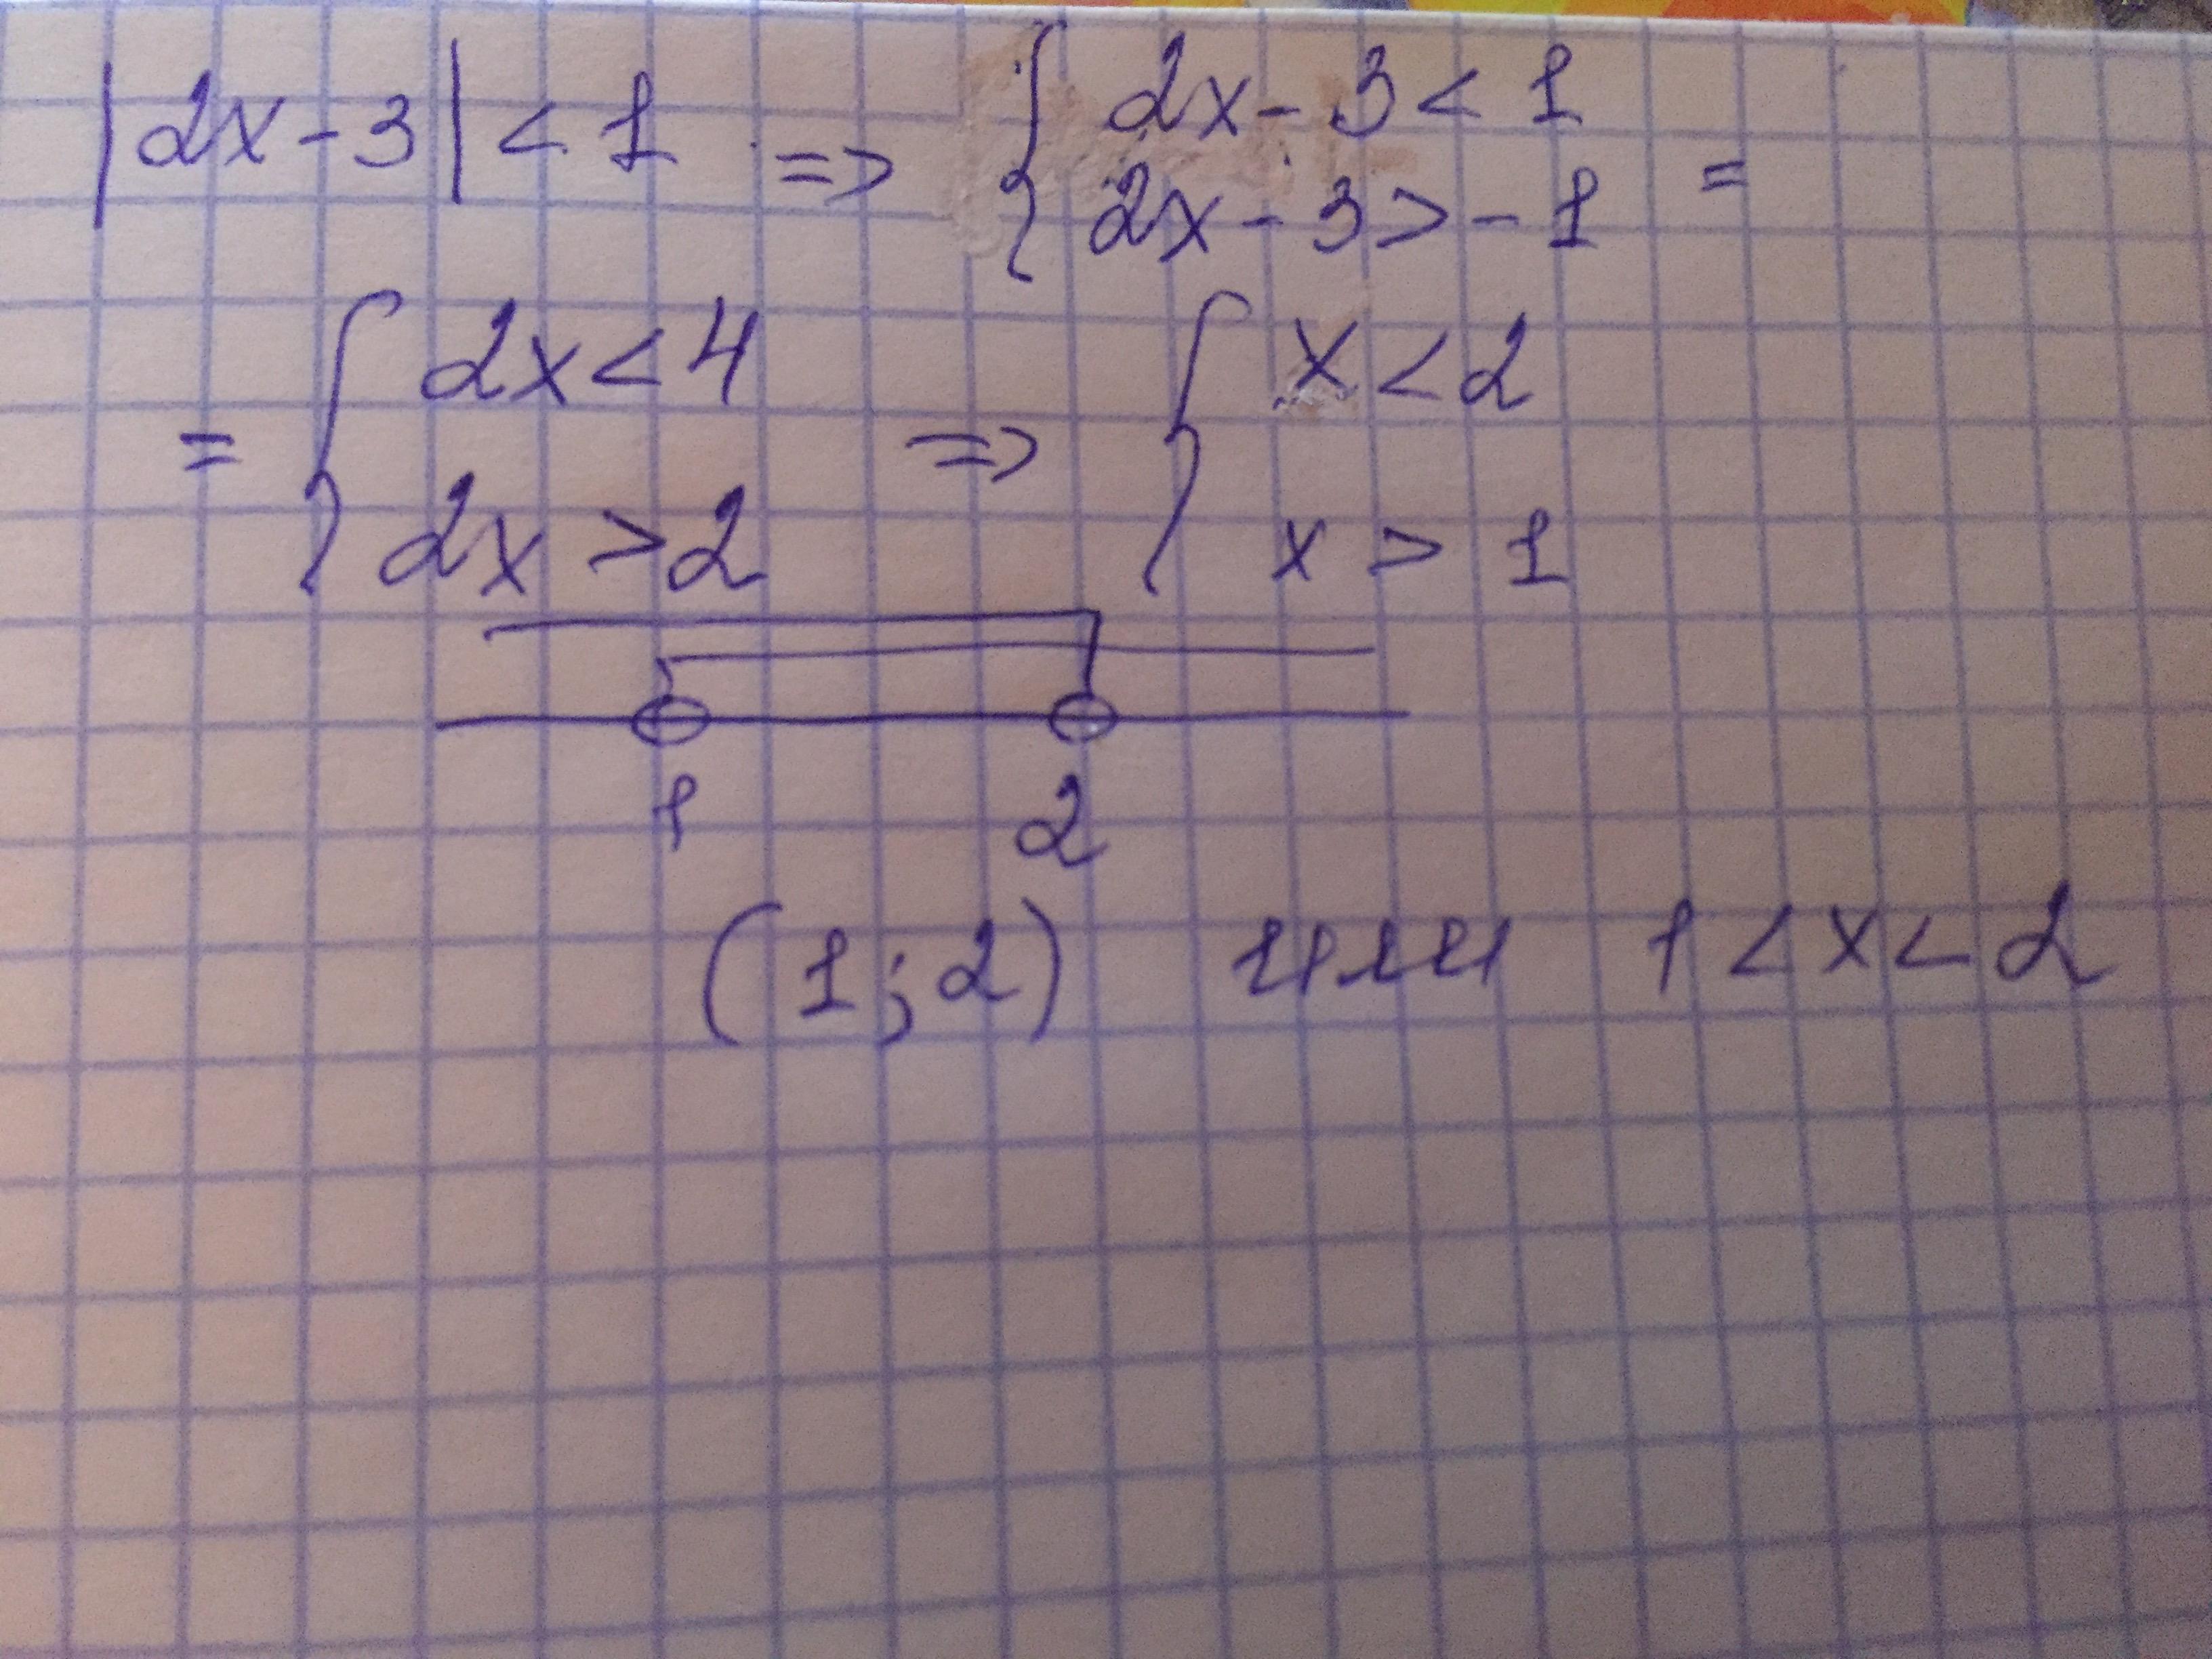 |2x-3|<1 => { 2x-3<1
2x-3>-1 =
= { 2x<4
2x>2 => { x<2
x>1
1 2
(1;2) или 1<x<2